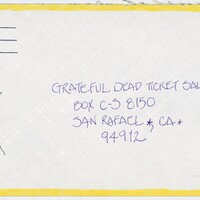 GRATEFUL DEAD TICKET SAL
BOX C-S 8150
SAN RAFAEL, CA
94912